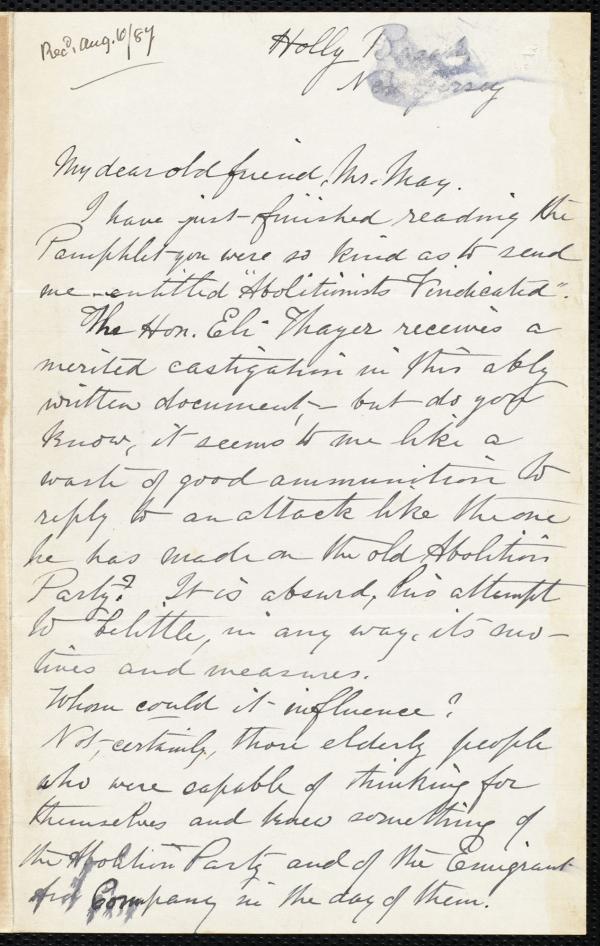 Rec'd. Aug. 6/87
Holly
New Jersey
My dear old friend, Mr. May.
I have just finished reading the
Pamphlet you were so kind as to send
me entitled "Abolitionists Vindicated".
The Hon. Eli Thayer receives a
merited castigation in this ably
written document, — but do you
know, it seems to me like a
waste of good ammunition to
reply to an attack like the one
he has made on the old Abolition
Party? It is absurd, his attempt
to belittle, in any way, its mo-
tives and measures.
Whom could it influence?
Not, certainly, those elderly people
who were capable of thinking for
themselves and knew something of
the Abolition Party and of the Emigrant
Aid Company in the day of them.